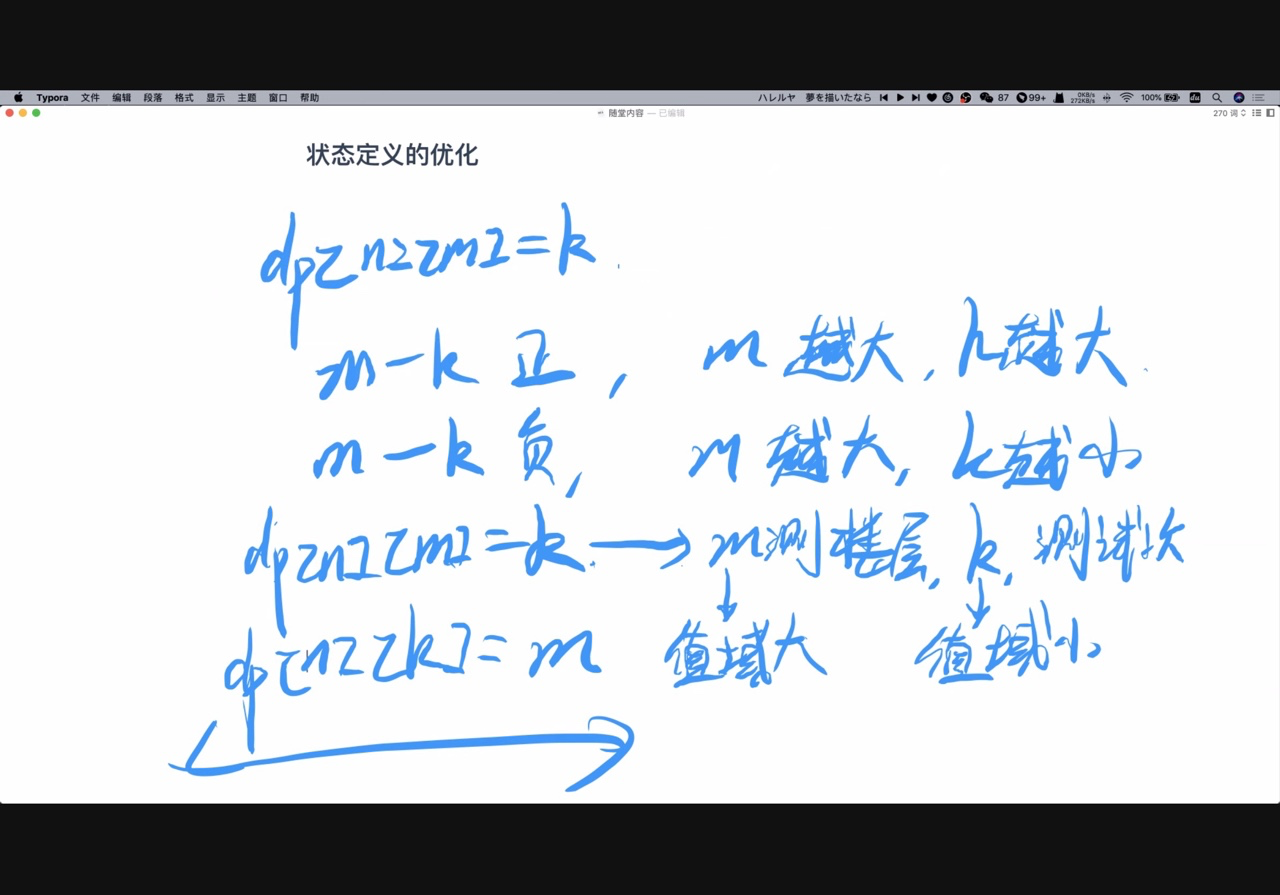 Typora 文件 编辑 段落 格式 显示 主题 窗口 帮助 ハレルヤ 夢を描いたなら 87 99+ 0KB/s 272KB/s 100%
随堂内容 — 已编辑 270 词
状态定义的优化
dp[n][m]=k
m-k 正, m 越大, k越大
m-k 负, m 越大, k越小
dp[n][m]=k → m测楼层, k, 测试次
↓ ↓
dp[n][k]=m 值域大 值域小